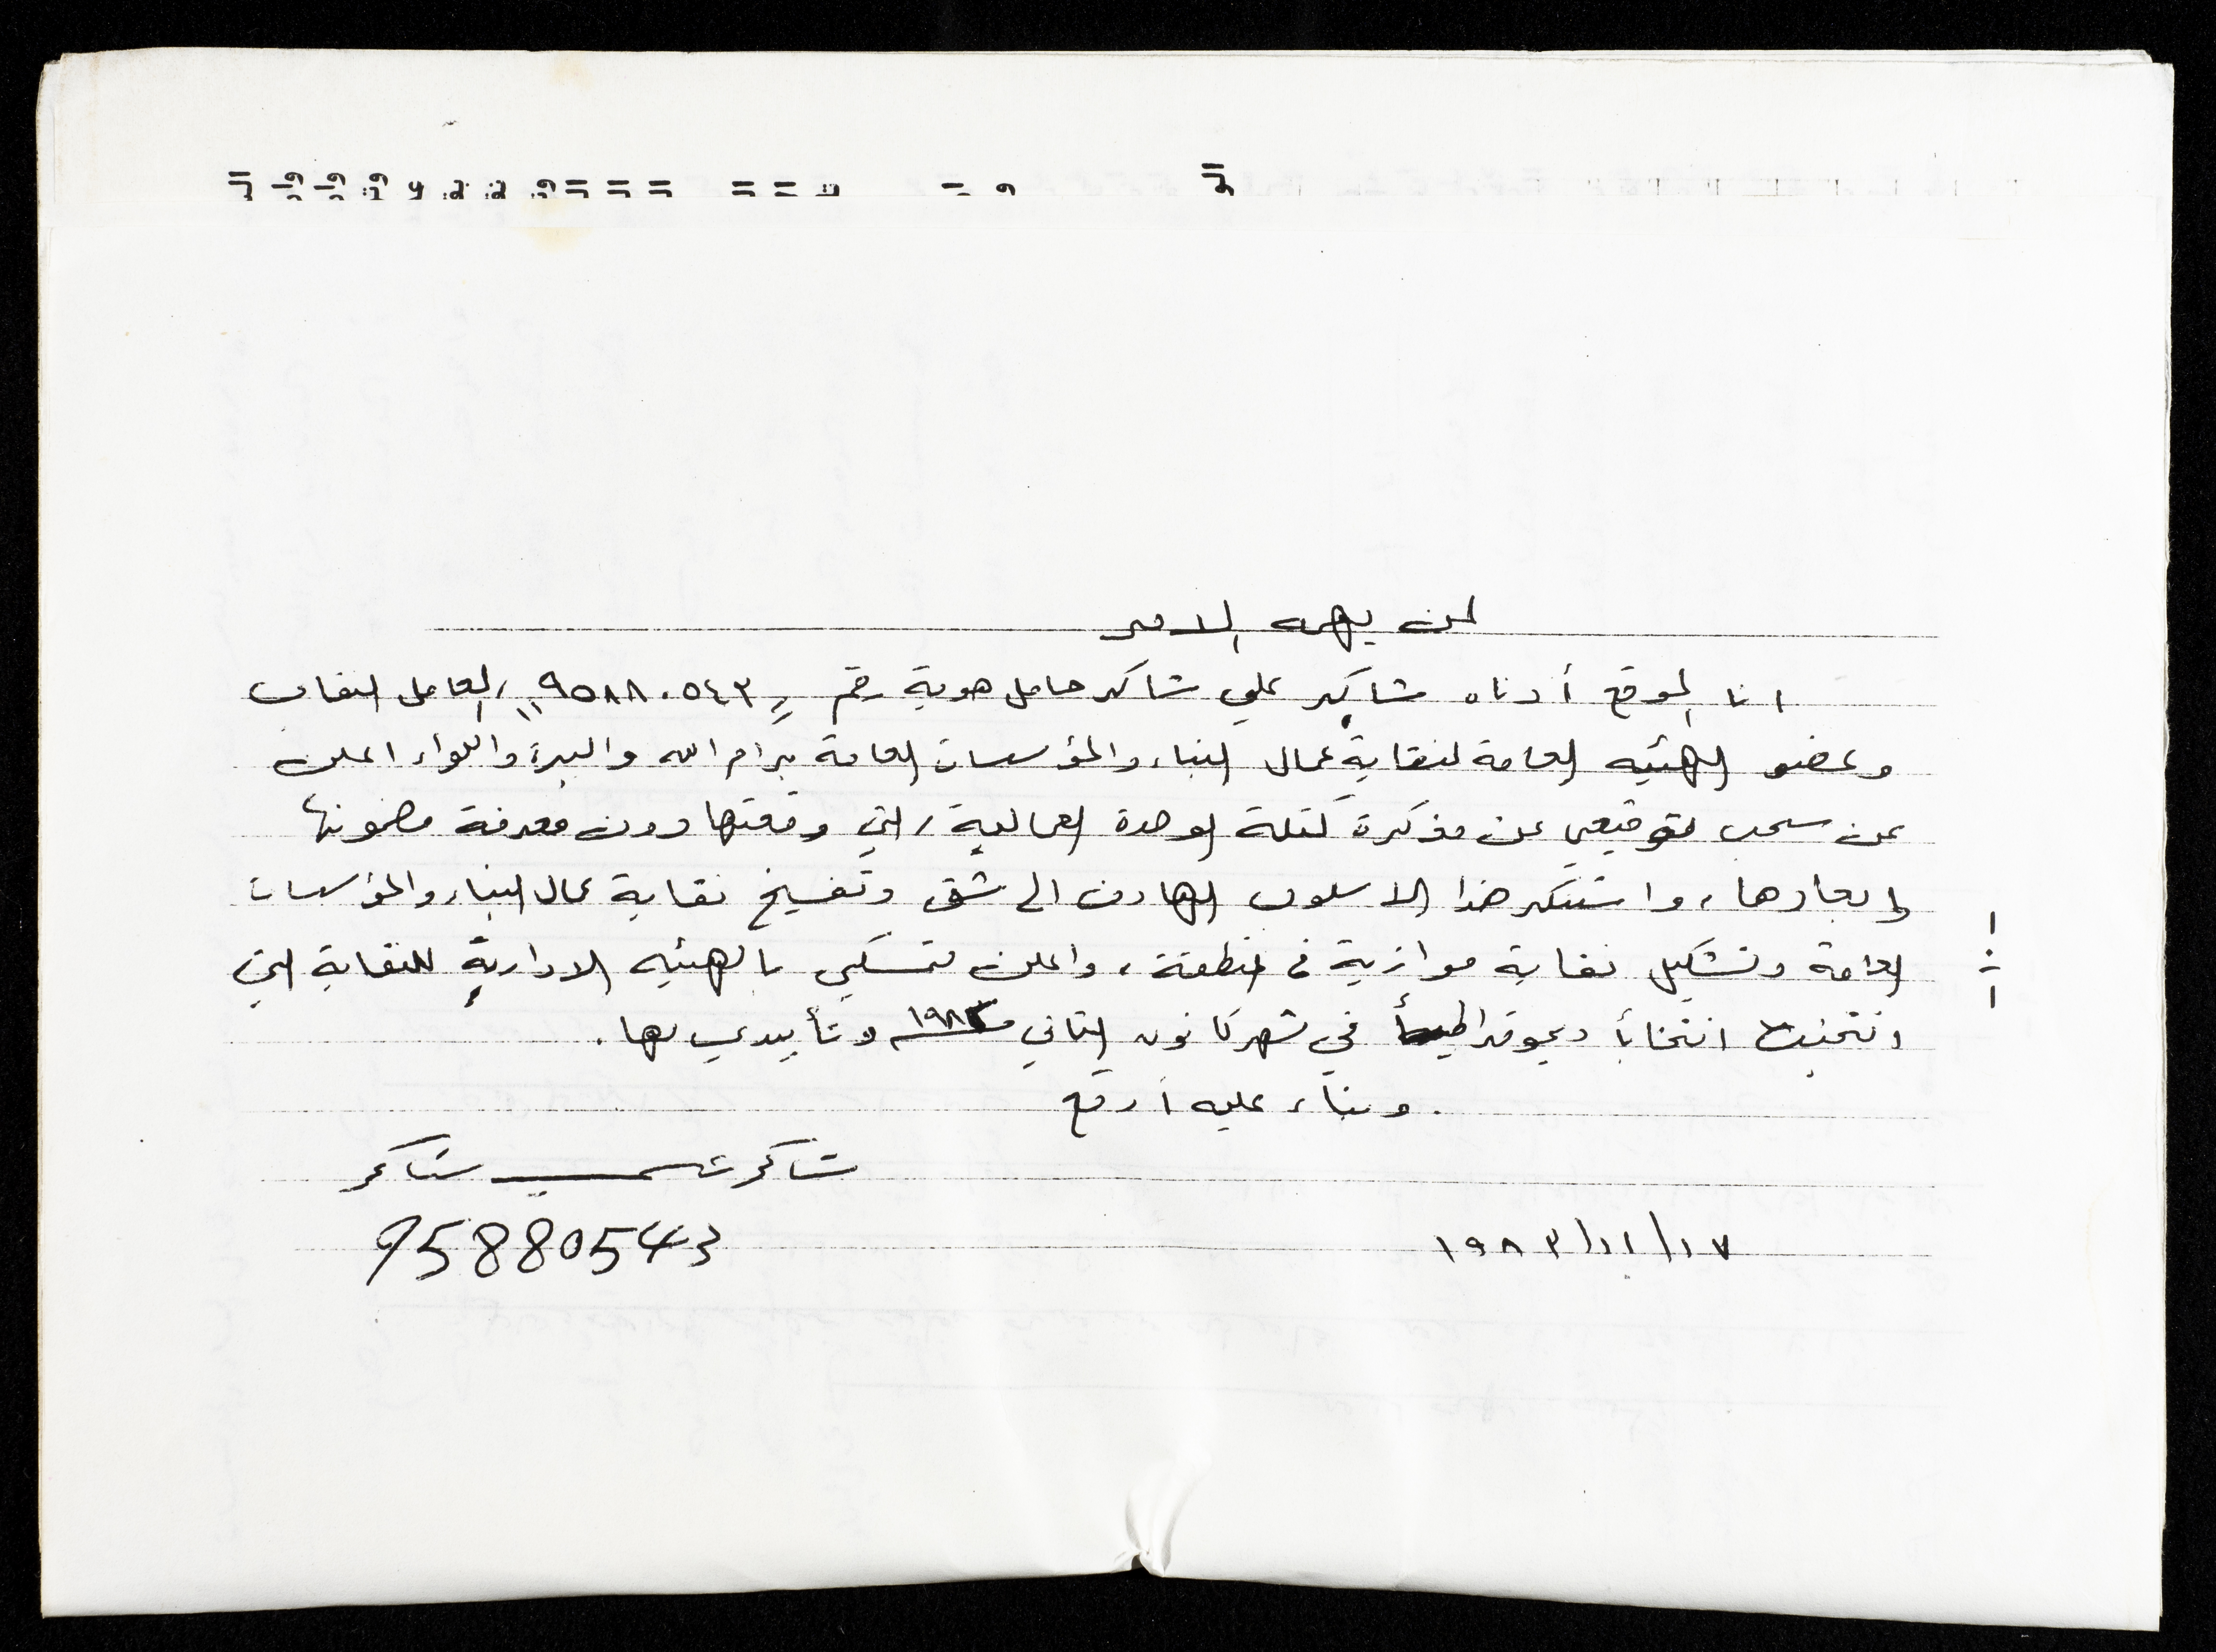 لمن يهمه الامر
انا الموقع أدناه شاكر علي شاكر حامل هوية رقم "٩٥٨٨٠٥٤٣" العامل النقابي
وعضو الهيئيه العامة لنقابة عمال البناء والمؤسسات العامة برام الله والبيرة واللواء اعلن
عن سحب توقيعي عن مذكرة كتلة الوحدة العمالية، التي وقعتها دون معرفة مضمونها
وابعادها، واستنكر هذا الاسلوب الهادف الى شق وتفسيخ نقابة عمال البناء والمؤسسات
العامة وتشكيل نقابة موازية في المنطقة، واعلن تمسكي بالهيئيه الادارية للنقابة التي
انتخبت انتخاباً ديموقراطياً في شهر كانون الثاني وتأييدي لها.
وبناء عليه أوقع
شاكر علي شاكر
١٩٨٣/١١/١٧
95880543